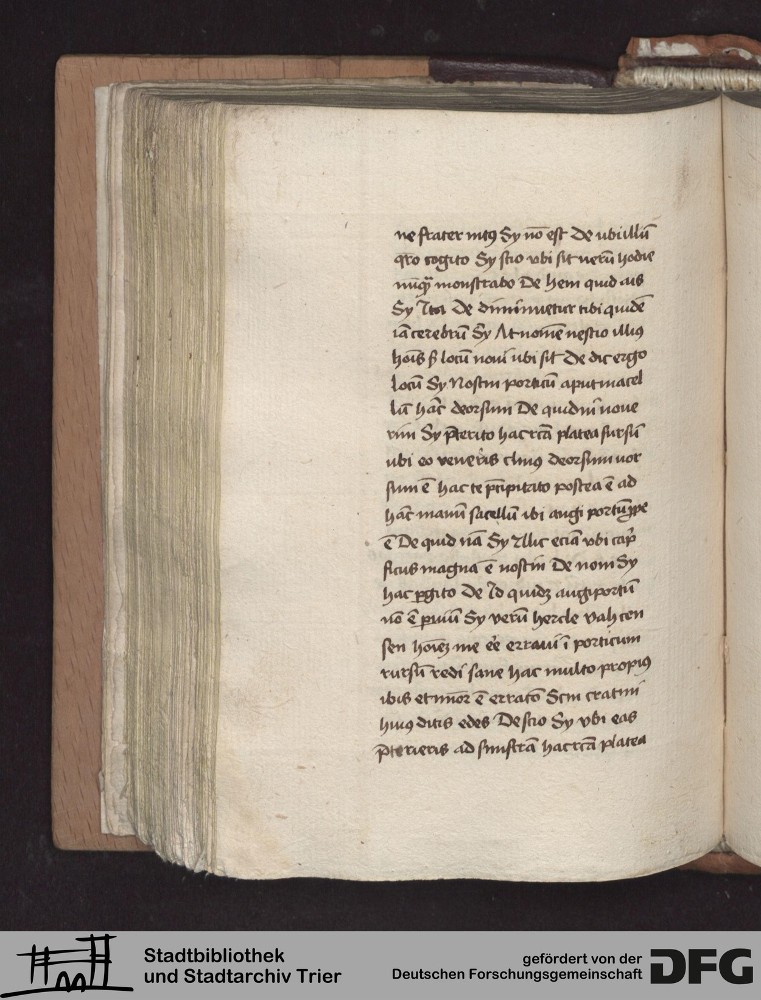 ne frater intꝰ Sy nō est De ubi illū
q̄ro cogito Sy scio vbi sit verū hodie
nūqᷓ monstrabo De hem quid ais
Sy Ita De diminuetur tibi quidē
iā cerebrū Sy At nomē nescio illiꝰ
hoīs ß locū novi ubi sit De dic ergo
locū Sy Nostin porticū aput macel
lū hāc deorsum De quid nī noue
rim Sy p̄terito hac rcā platea sursū
ubi eo veneris cliuꝰ deorsum uor
sum ē hac te p̄cipitato postea ē ad
hāc manū sacellū ibi angi portū ꝓpe
ē De quid nā Sy Illic eciā vbi cap̄
ficus magna ē nostin De novi Sy
hac ꝑgito De Id quidꝫ angiportū
nō ē ꝑuiū Sy verū hercle vah cen
sen hoīeꝫ me eē erravi ī porticum
rursū redi sane hac multo propiꝰ
ibis et minor ē erratō Scin cratini
huiꝰ ditis edes De scio Sy vbi eas
p̄terieris ad sinistrā hac rcā platea
Stadtbibliothek
und Stadtarchiv Trier
gefördert von der
Deutschen Forschungsgemeinschaft
DFG